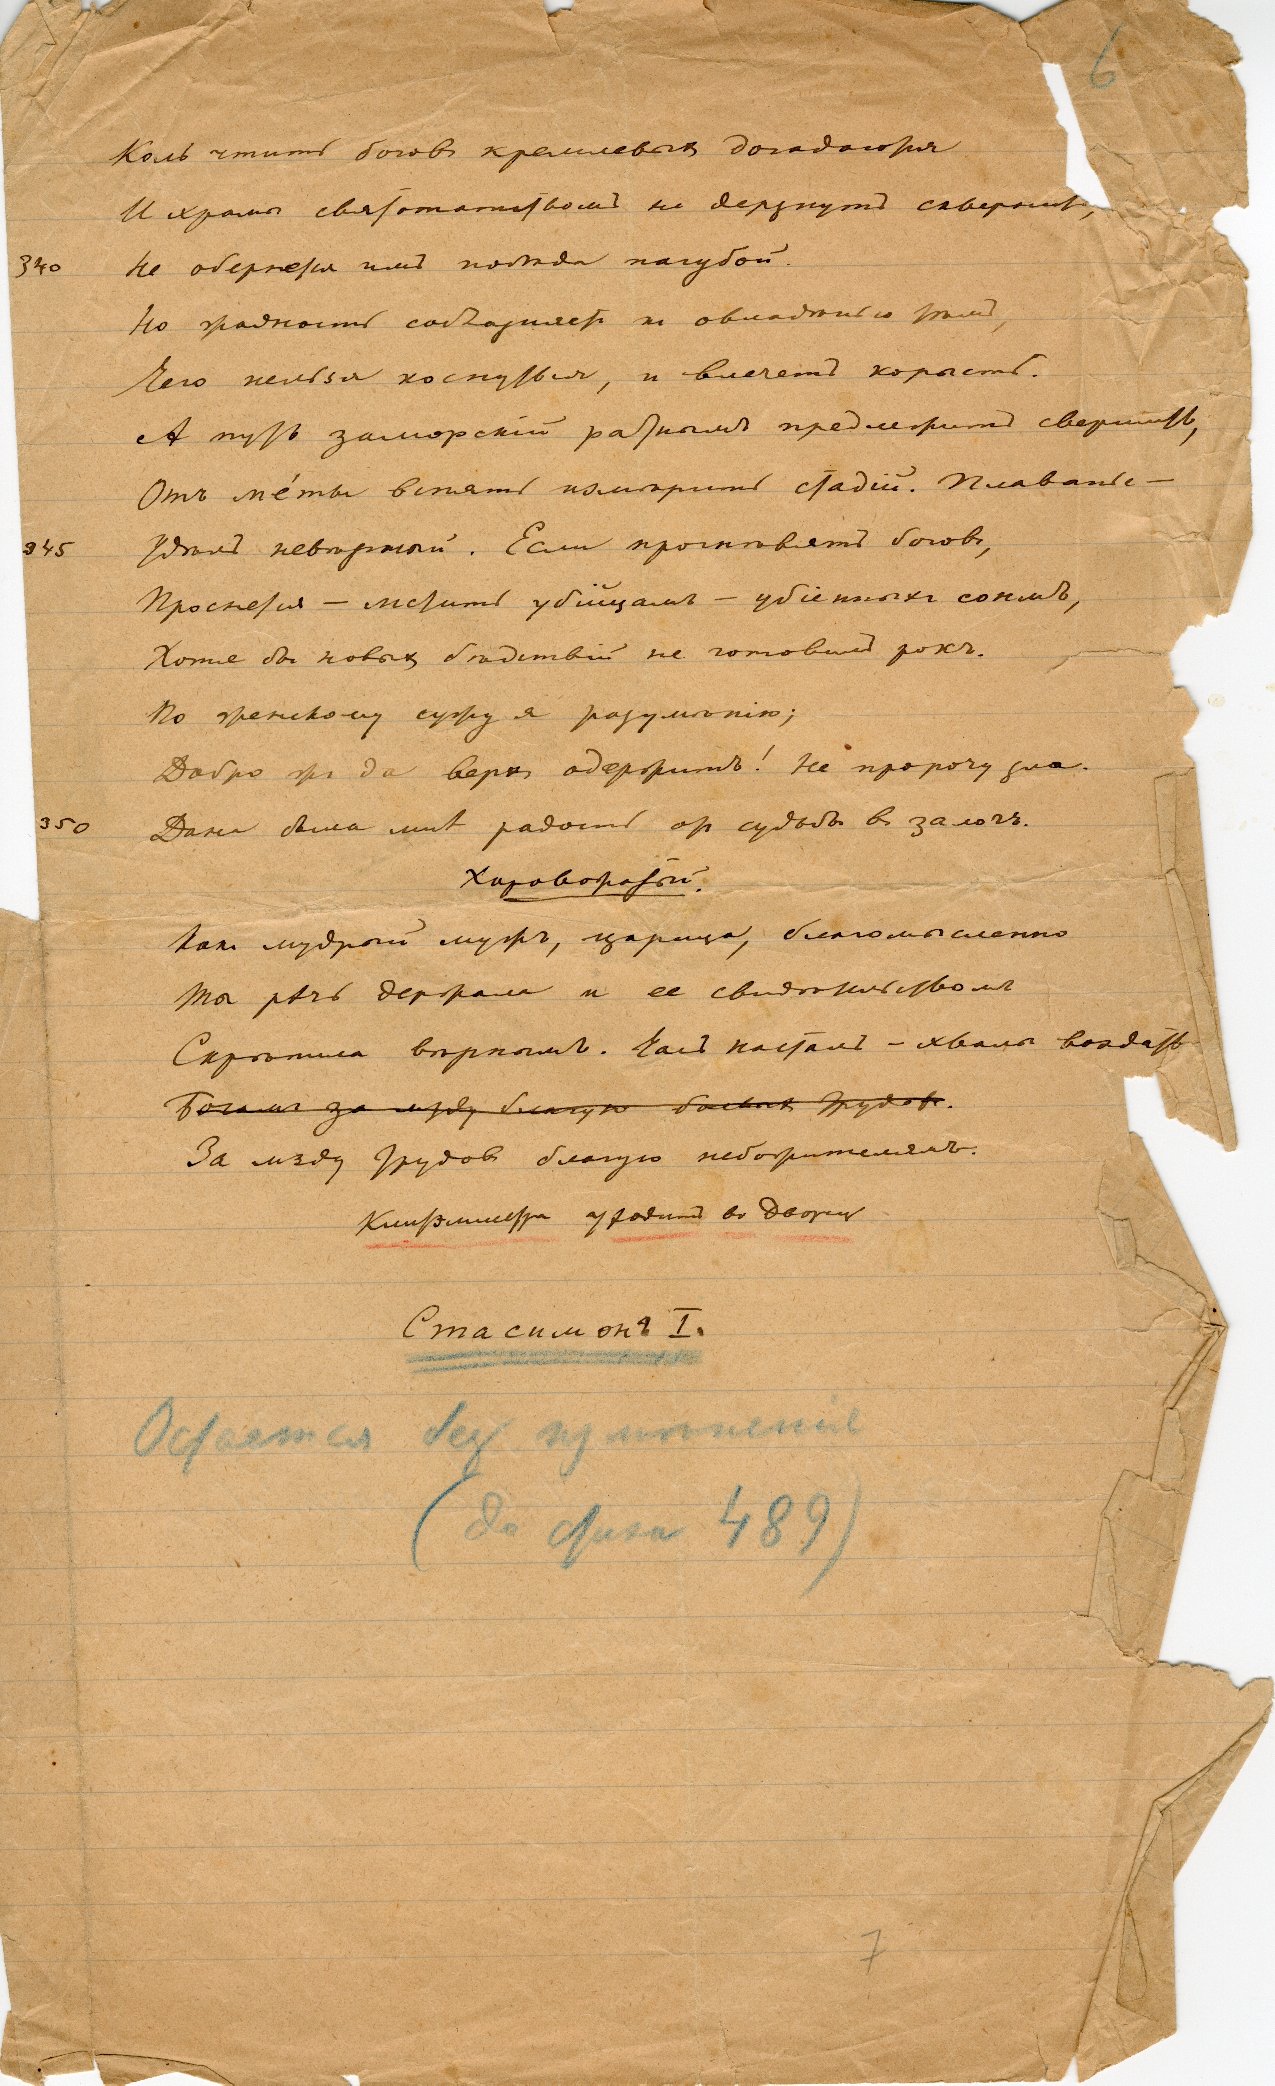 6
Коль чтить боговъ кремлевыхъ догадаются
И храмы святотатствомъ не дерзнутъ сквернить,
340 Не обернется имъ побѣда пагубой.
Но жадность соблазняетъ къ овладѣнью тѣмъ,
Чего нельзя коснуться, и влечетъ корысть.
А путь заморскій ратнымъ предлежитъ свершить,
Отъ мéты вспять измѣрить стадій. Плаванье –
345 Удѣлъ невѣрный. Если прогнѣвятъ боговъ,
Проснется – мстить убійцамъ – убіенныхъ сонмъ,
Хотя бы новыхъ бѣдствій не готовилъ рокъ.
По женскому сужу я разумѣнію;
Добро жъ да верхъ одержитъ! Не пророчу зла.
350 Дана была мнѣ радость отъ судьбы въ залогъ.
Хороводный.
Какъ мудрый мужъ, царица, благомысленно
Ты рѣчь держала и ее свидѣтельствомъ
Скрѣпила вѣрнымъ. Часъ насталъ – хвалы воздать
Богамъ за мзду благую боевыхъ трудовъ.
За мзду трудовъ благую небожителямъ.
Клитэмнестра уходитъ во дворецъ
Стасимонъ I.
Остается безъ измѣненія
(до стиха 489)
7